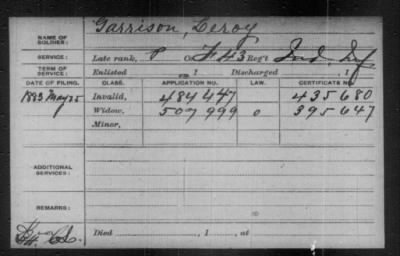 NAME OF SOLDIER: Garrison, Leroy
SERVICE: Late rank, P Co. F 43 Reg't Ind. Inf
TERM OF SERVICE: Enlisted , 1 Discharged , 1
DATE OF FILING. CLASS. APPLICATION NO. LAW. CERTIFICATE NO.
1883 May 25 Invalid, 484 447 435 680
Widow, 507 999 395 647
Minor,
ADDITIONAL SERVICES:
REMARKS:
Died , 1 , at